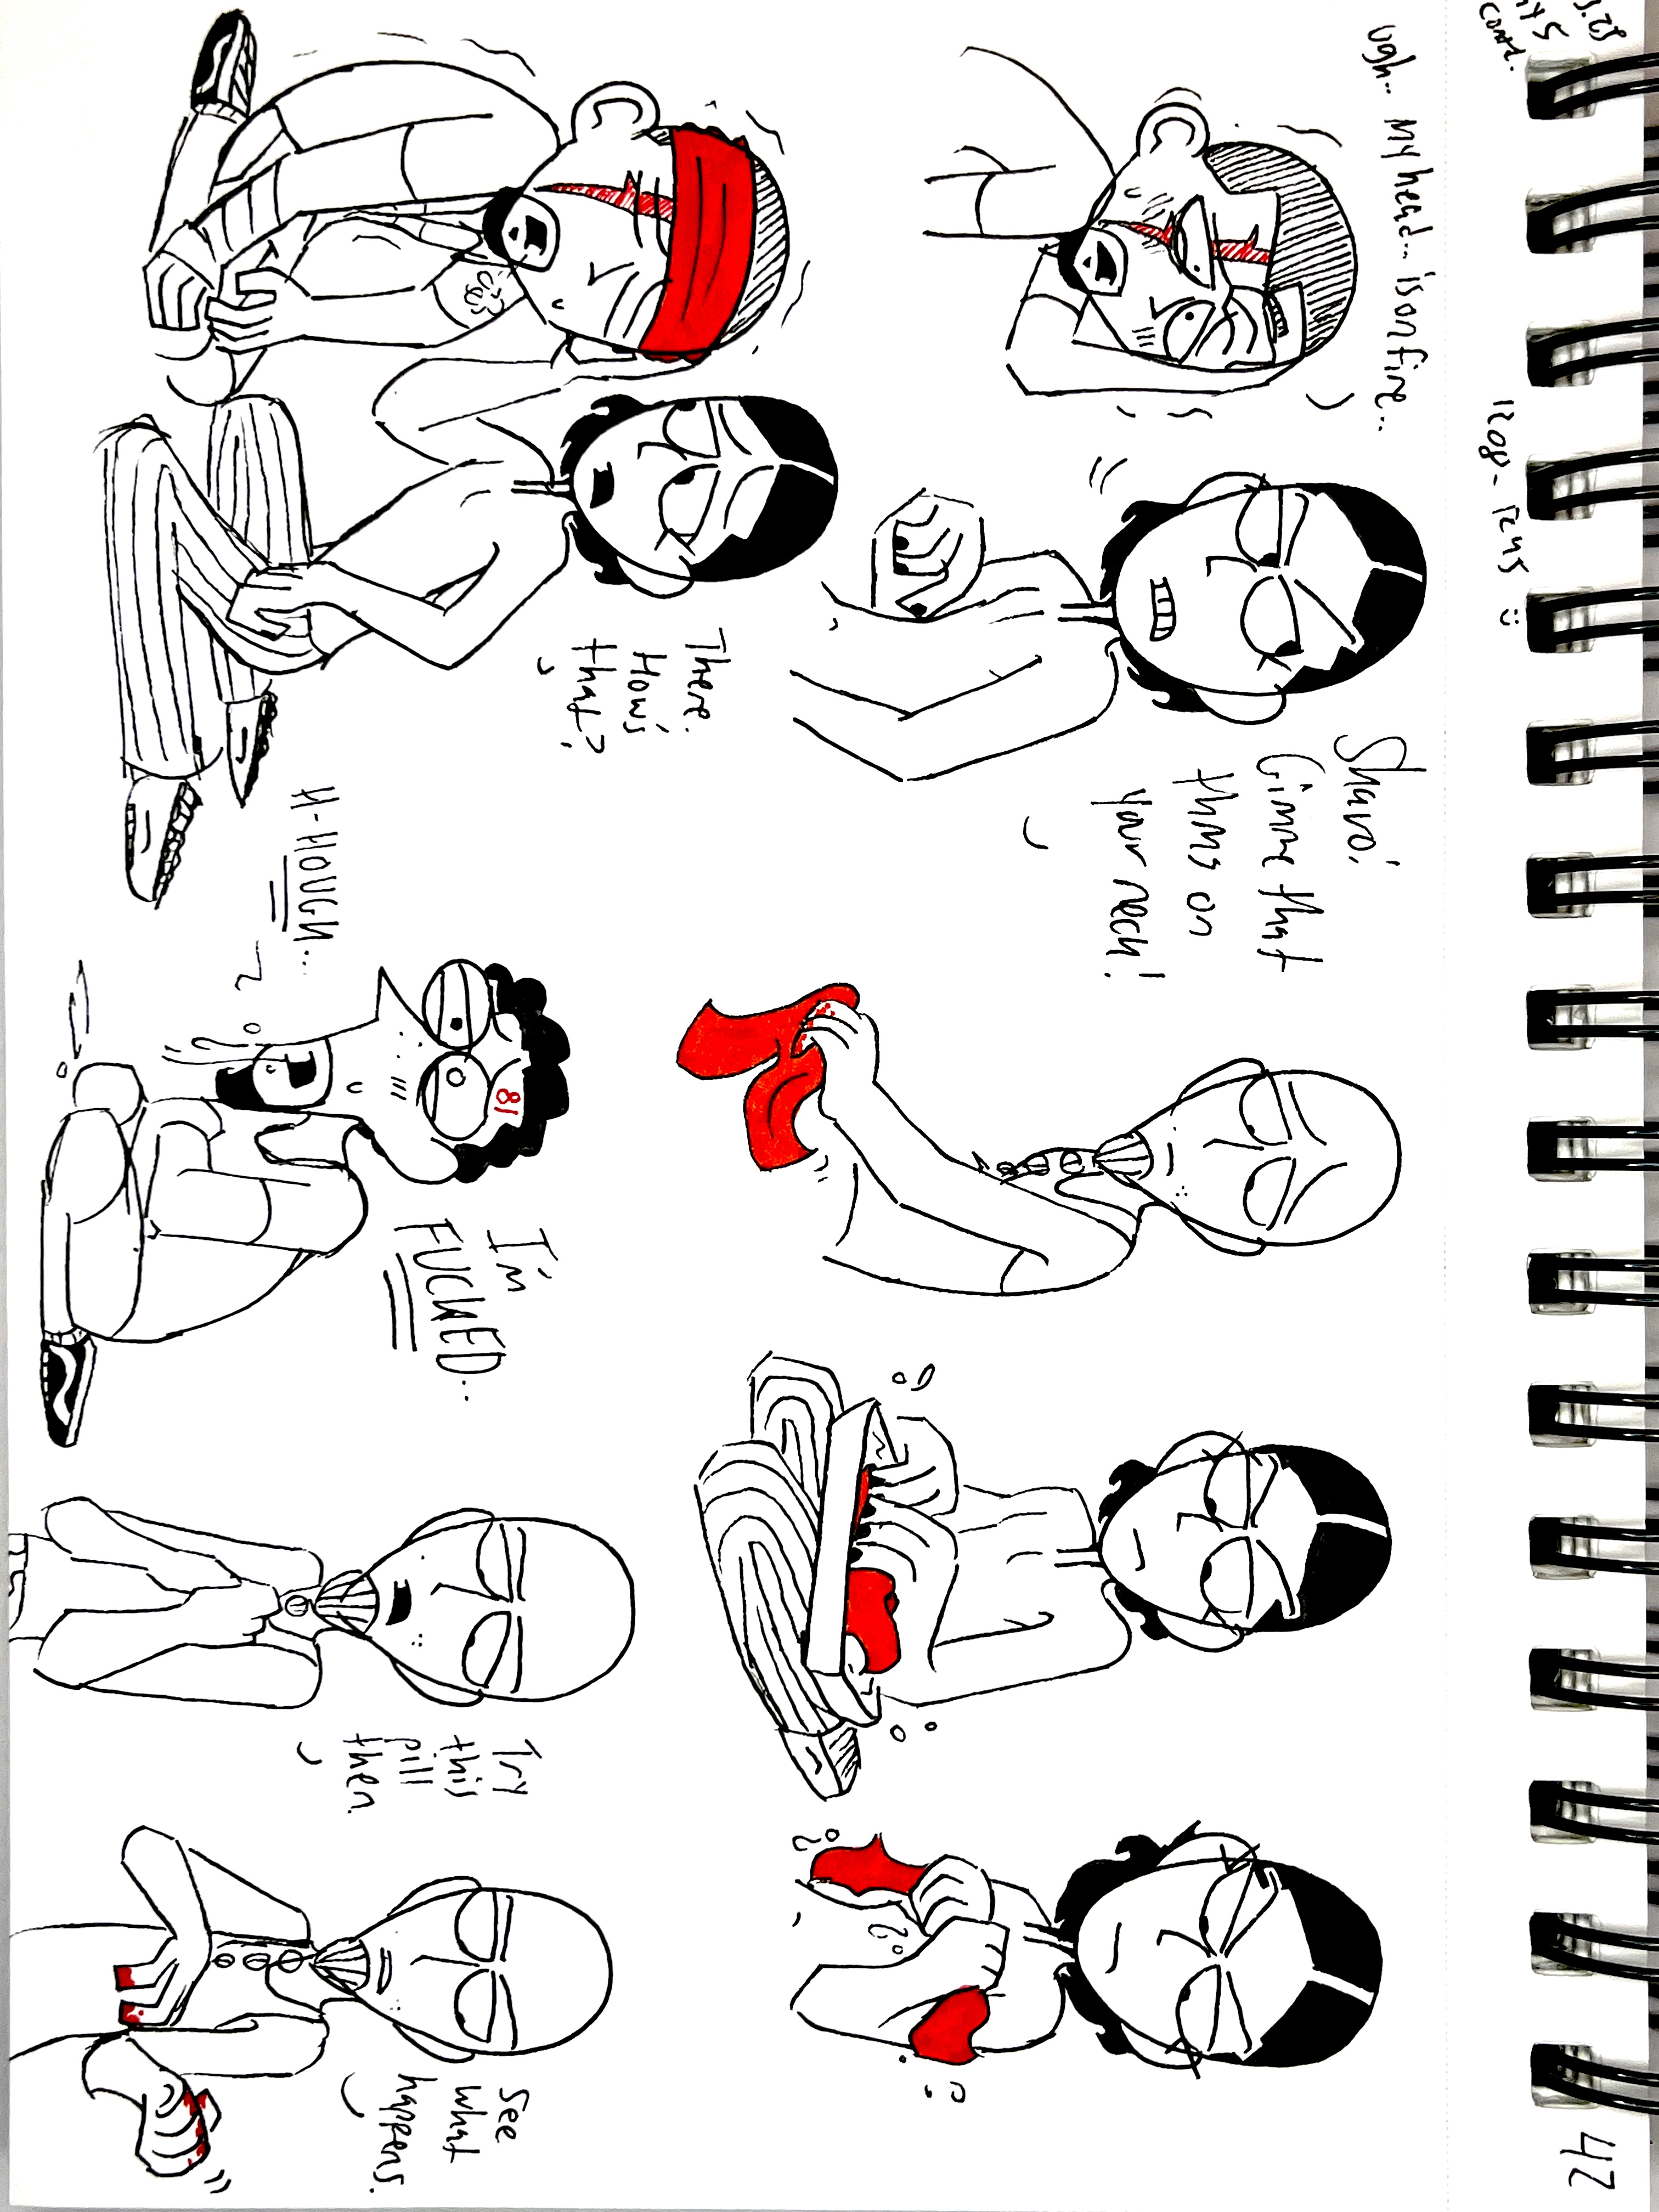 42
cont.
ugh.. My head... is on fire..
Shavo!
Gimme that
thing on
your neck!
There.
How's
that?
81
I'm
FUCKED..
H-HOUGH...
Try
this
pill
then.
See
what
happens.